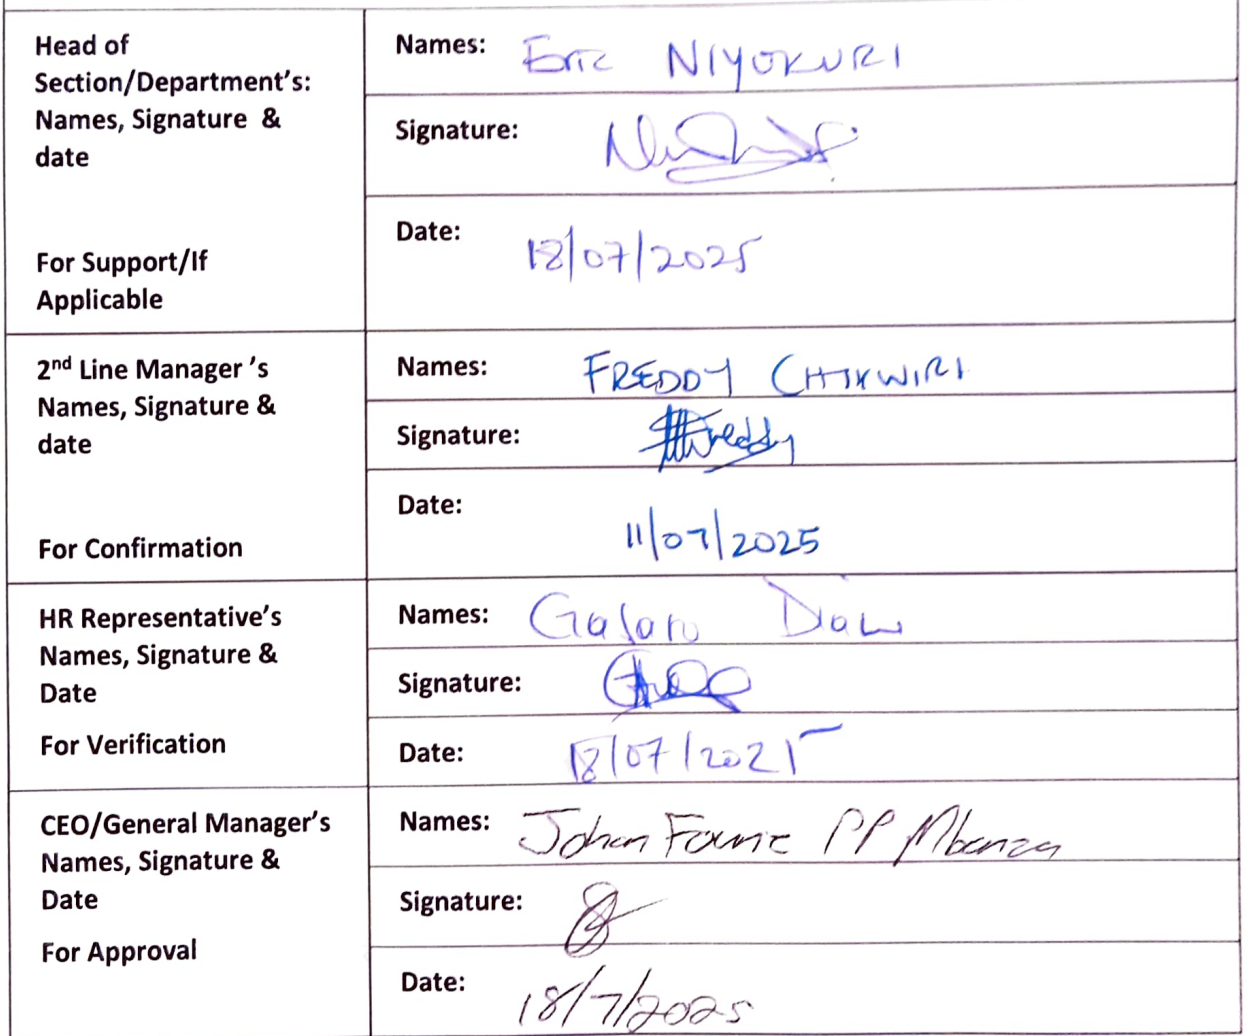 Head of
Section/Department's:
Names, Signature &
date
For Support/If
Applicable
Names: Eric NIYOKURI
Signature:
Date: 18/07/2025
2nd Line Manager 's
Names, Signature &
date
For Confirmation
Names: FREDDY
Signature: Freddy
Date: 11/07/2025
HR Representative's
Names, Signature &
Date
For Verification
Names:
Signature:
Date: 18/07/2025
CEO/General Manager's
Names, Signature &
Date
For Approval
Names: Johan Fourie PP Mbanza
Signature:
Date: 18/7/2025